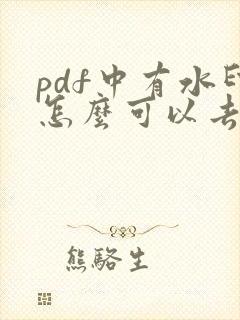 pdf中有水
怎麼可以去
熊駱生